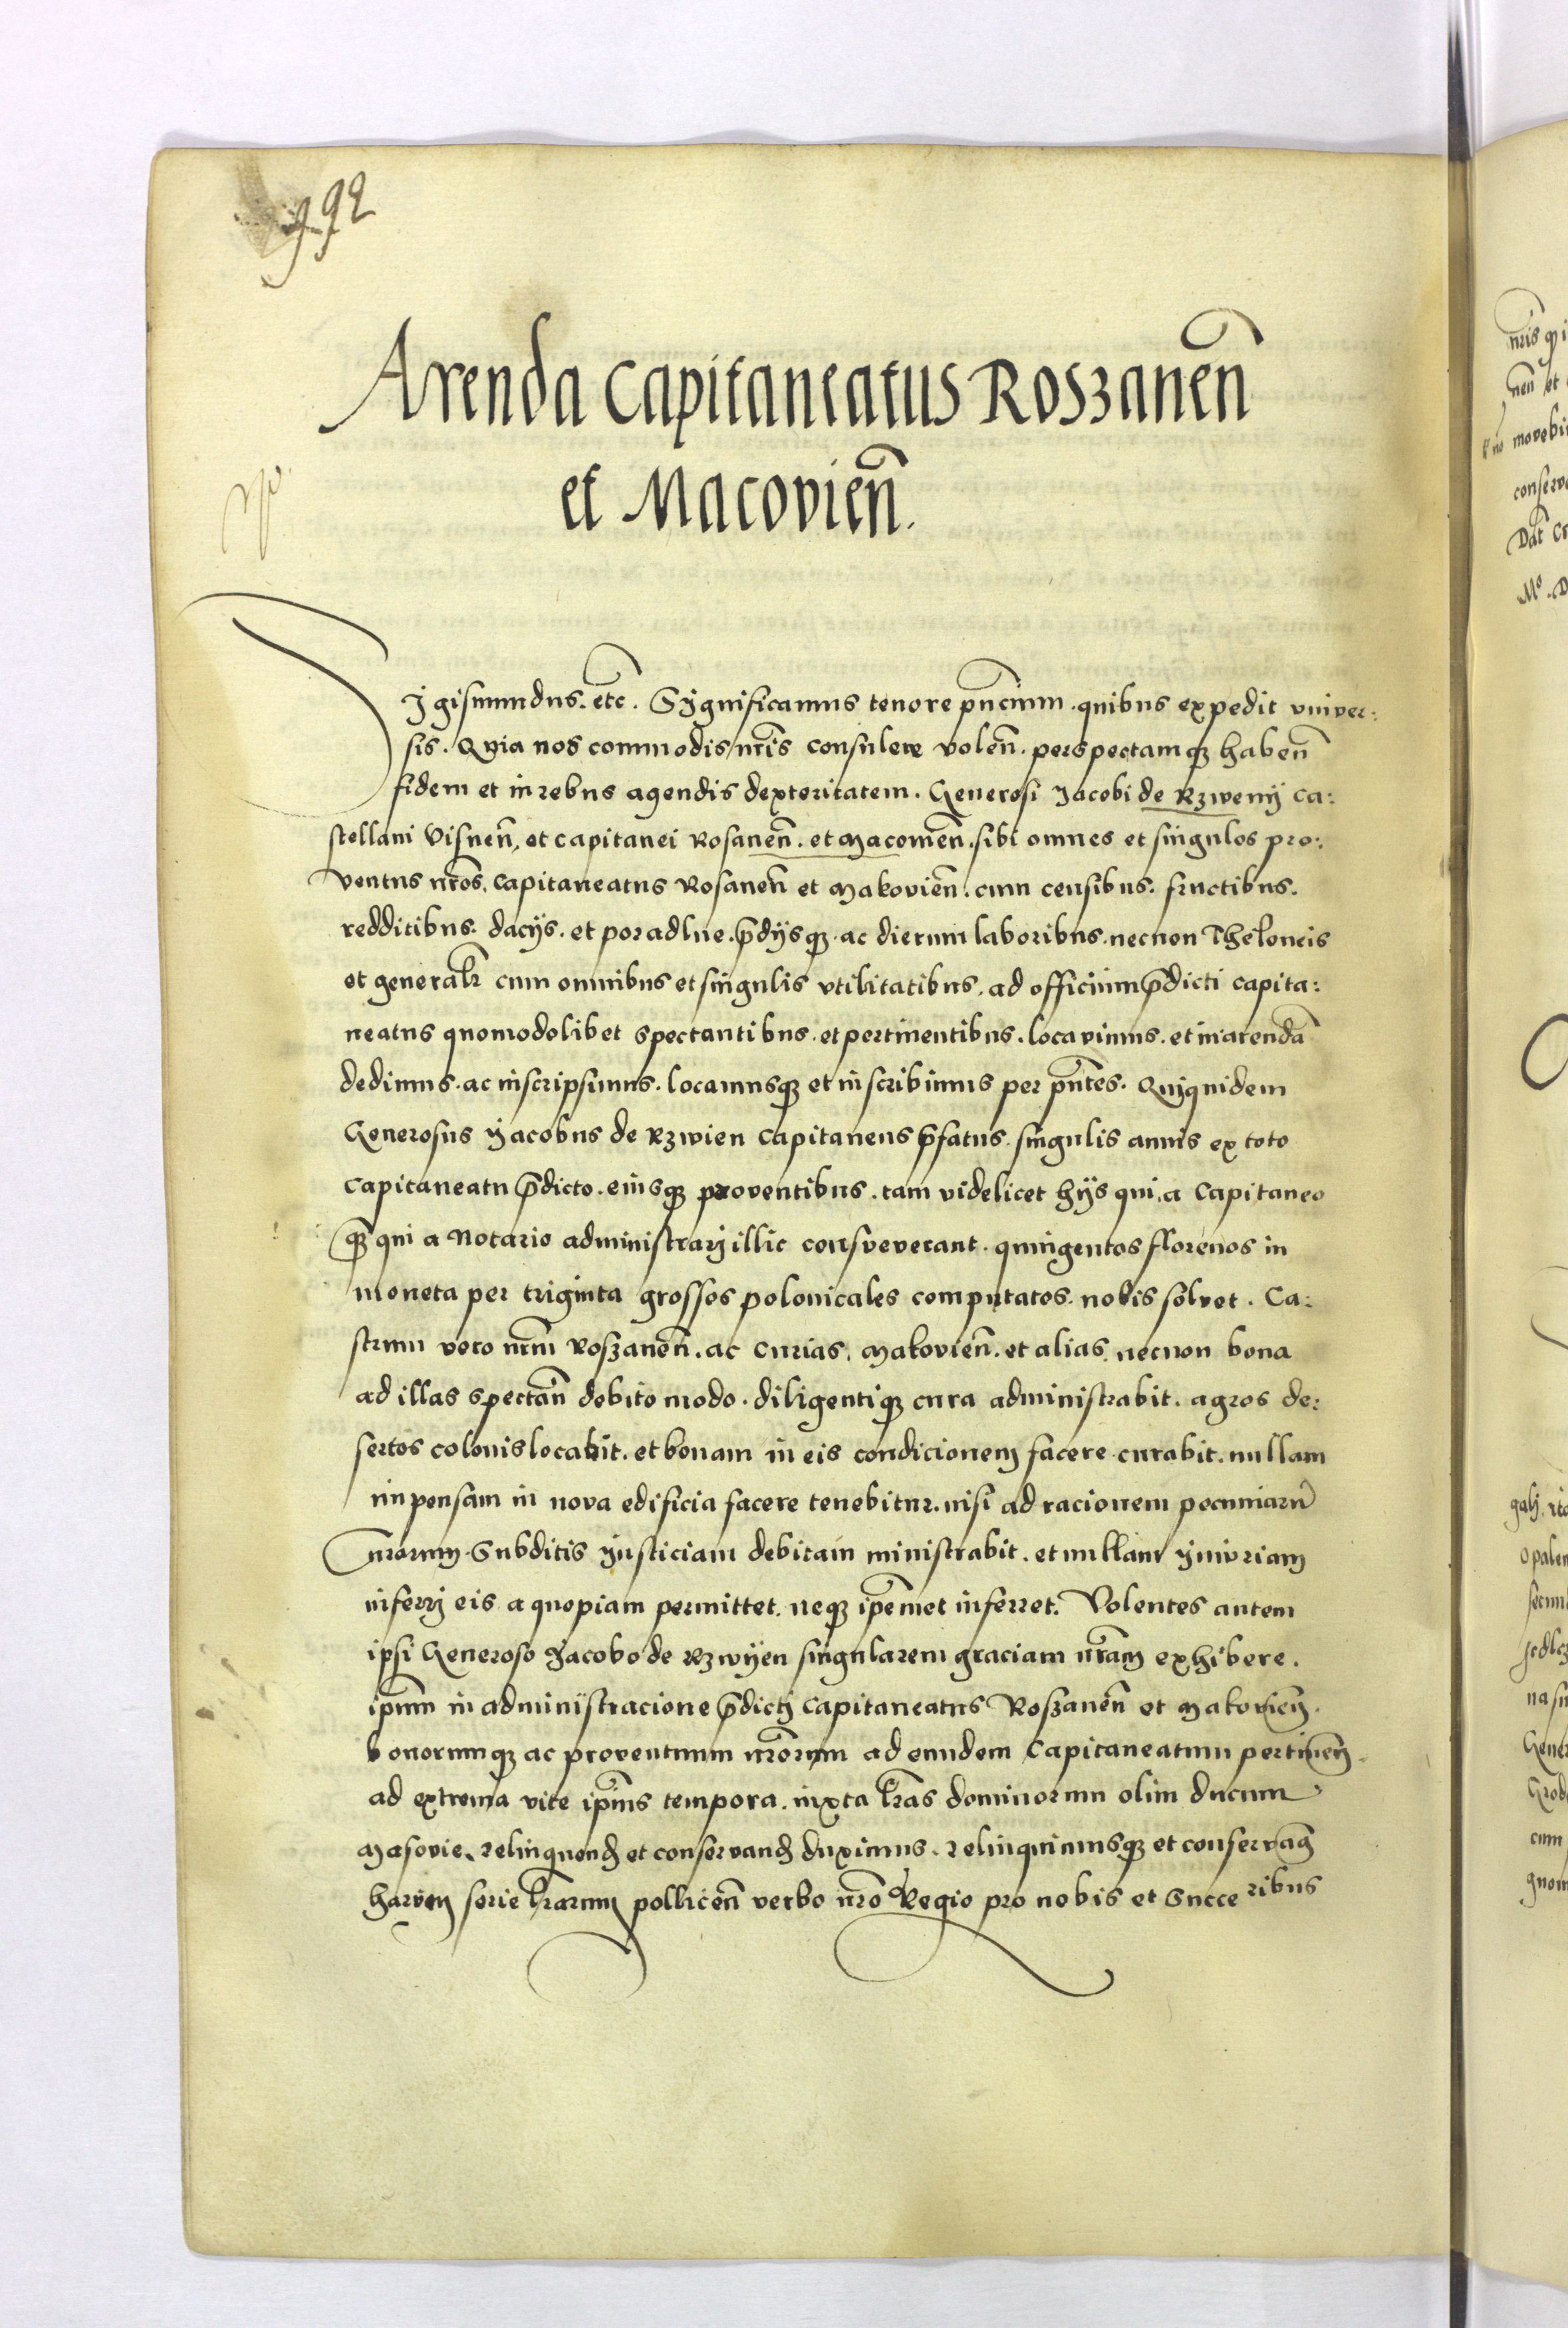 992
Arenda Capitaneatus Roszaneñ
et Macovieñ.
Sigismundus. etc̃. Sygnificamus tenore pñcium. quibus expedit vniver:
sis. Quia nos commodis nr̃is consulere voleñ. perspectamqȝ habeñ
fidem et in rebus agendis dexteritatem. Generosi Jacobi de Rzweny Ca:
stellani Visneñ, et capitanei Rosaneñ. et Macovieñ. sibi omnes et singulos pro:
ventus nr̃os. Capitaneatus Rosaneñ et Makovieñ. cum censibus. fructibus.
redditibus. dacijs. et poradlne. p̃dijsqȝ. ac dierum laboribus. necnon Theloneis
et generalr̃ cum omnibus et singulis vtilitatibus. ad officium p̃dicti capita:
neatus quomodolibet spectantibus. et pertinentibus. locavimus. et in arendã
dedimus. ac inscripsimus. locamusqȝ et inscribimus per pñtes. Quiquidem
Generosus Jacobus de Rzwien Capitaneus p̃fatus. singulis annis ex toto
Capitaneatu p̃dicto. eiusqȝ proventibus. tam videlicet hijs qui. a Capitaneo
qȝ qui a Notario administrarj illic consveverant. quingentos florenos in
moneta per triginta grossos polonicales computatos. nobis solvet. Ca:
strum vero nr̃m Roszaneñ. ac Curias. Makovieñ. et alias. necnon bona
ad illas spectañ debito modo. diligentiqȝ cura administrabit. agros de:
sertos colonis locabit. et bonam in eis condicionem facere curabit. nullam
impensam in nova edificia facere tenebitur. nisi ad racionem pecuniarũ
nr̃arum. Subditis justiciam debitam ministrabit. et nullam jniuriam
inferrj eis a quopiam permittet. neqȝ ip̃emet inferret. Volentes autem
ipsi Generoso Jacobo de Rzwyen singularem graciam nr̃am exhibere.
ip̃um in administracione p̃dictj Capitaneatus Roszaneñ et Makovieñ.
bonorumqȝ ac proventuum nr̃orum ad eundem Capitaneatum pertineñ.
ad extrema vite ip̃ius tempora. iuxta lr̃as dominorum olim ducum
Masovie. relinquend et conservand duximus. relinquimusqȝ et conservam̃
harum serie lr̃arum polliceñ verbo nr̃o Regio pro nobis et Succe ribus